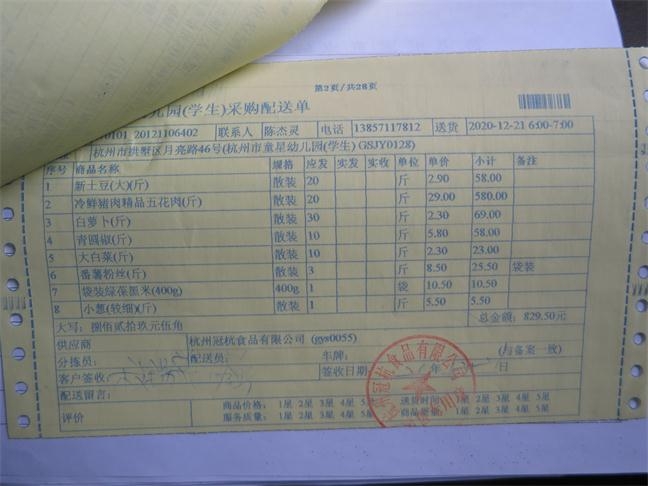 第2页/共28页
儿园(学生)采购配送单
0101_20121106402 联系人 陈杰灵 电话 13857117812 送货 2020-12-21 6:00-7:00
杭州市拱墅区月亮路46号(杭州市童星幼儿园(学生) GSJY0128)
序号 商品名称 规格 应发 实发 实收 单位 单价 小计 备注
1 新土豆(大)(斤) 散装 20 斤 2.90 58.00
2 冷鲜猪肉精品五花肉(斤) 散装 20 斤 29.00 580.00
3 白萝卜(斤) 散装 30 斤 2.30 69.00
4 青圆椒(斤) 散装 10 斤 5.80 58.00
5 大白菜(斤) 散装 10 斤 2.30 23.00
6 番薯粉丝(斤) 散装 3 斤 8.50 25.50 袋装
7 袋装绿保黑米(400g) 400g 1 袋 10.50 10.50
8 小葱(较细)(斤) 散装 1 斤 5.50 5.50
大写: 捌佰贰拾玖元伍角 总金额: 829.50元
供应商 杭州冠杭食品有限公司 (gys0055)
分拣员: 配送员: 车牌: (与备案一致)
客户签收: 签收日期: 日
配送留言:
评价 商品价格: 1星 2星 3星 4星 5星 送货时间: 1星 2星 3星 4星 5星
服务质量: 1星 2星 3星 4星 5星 商品质量: 1星 2星 3星 4星 5星